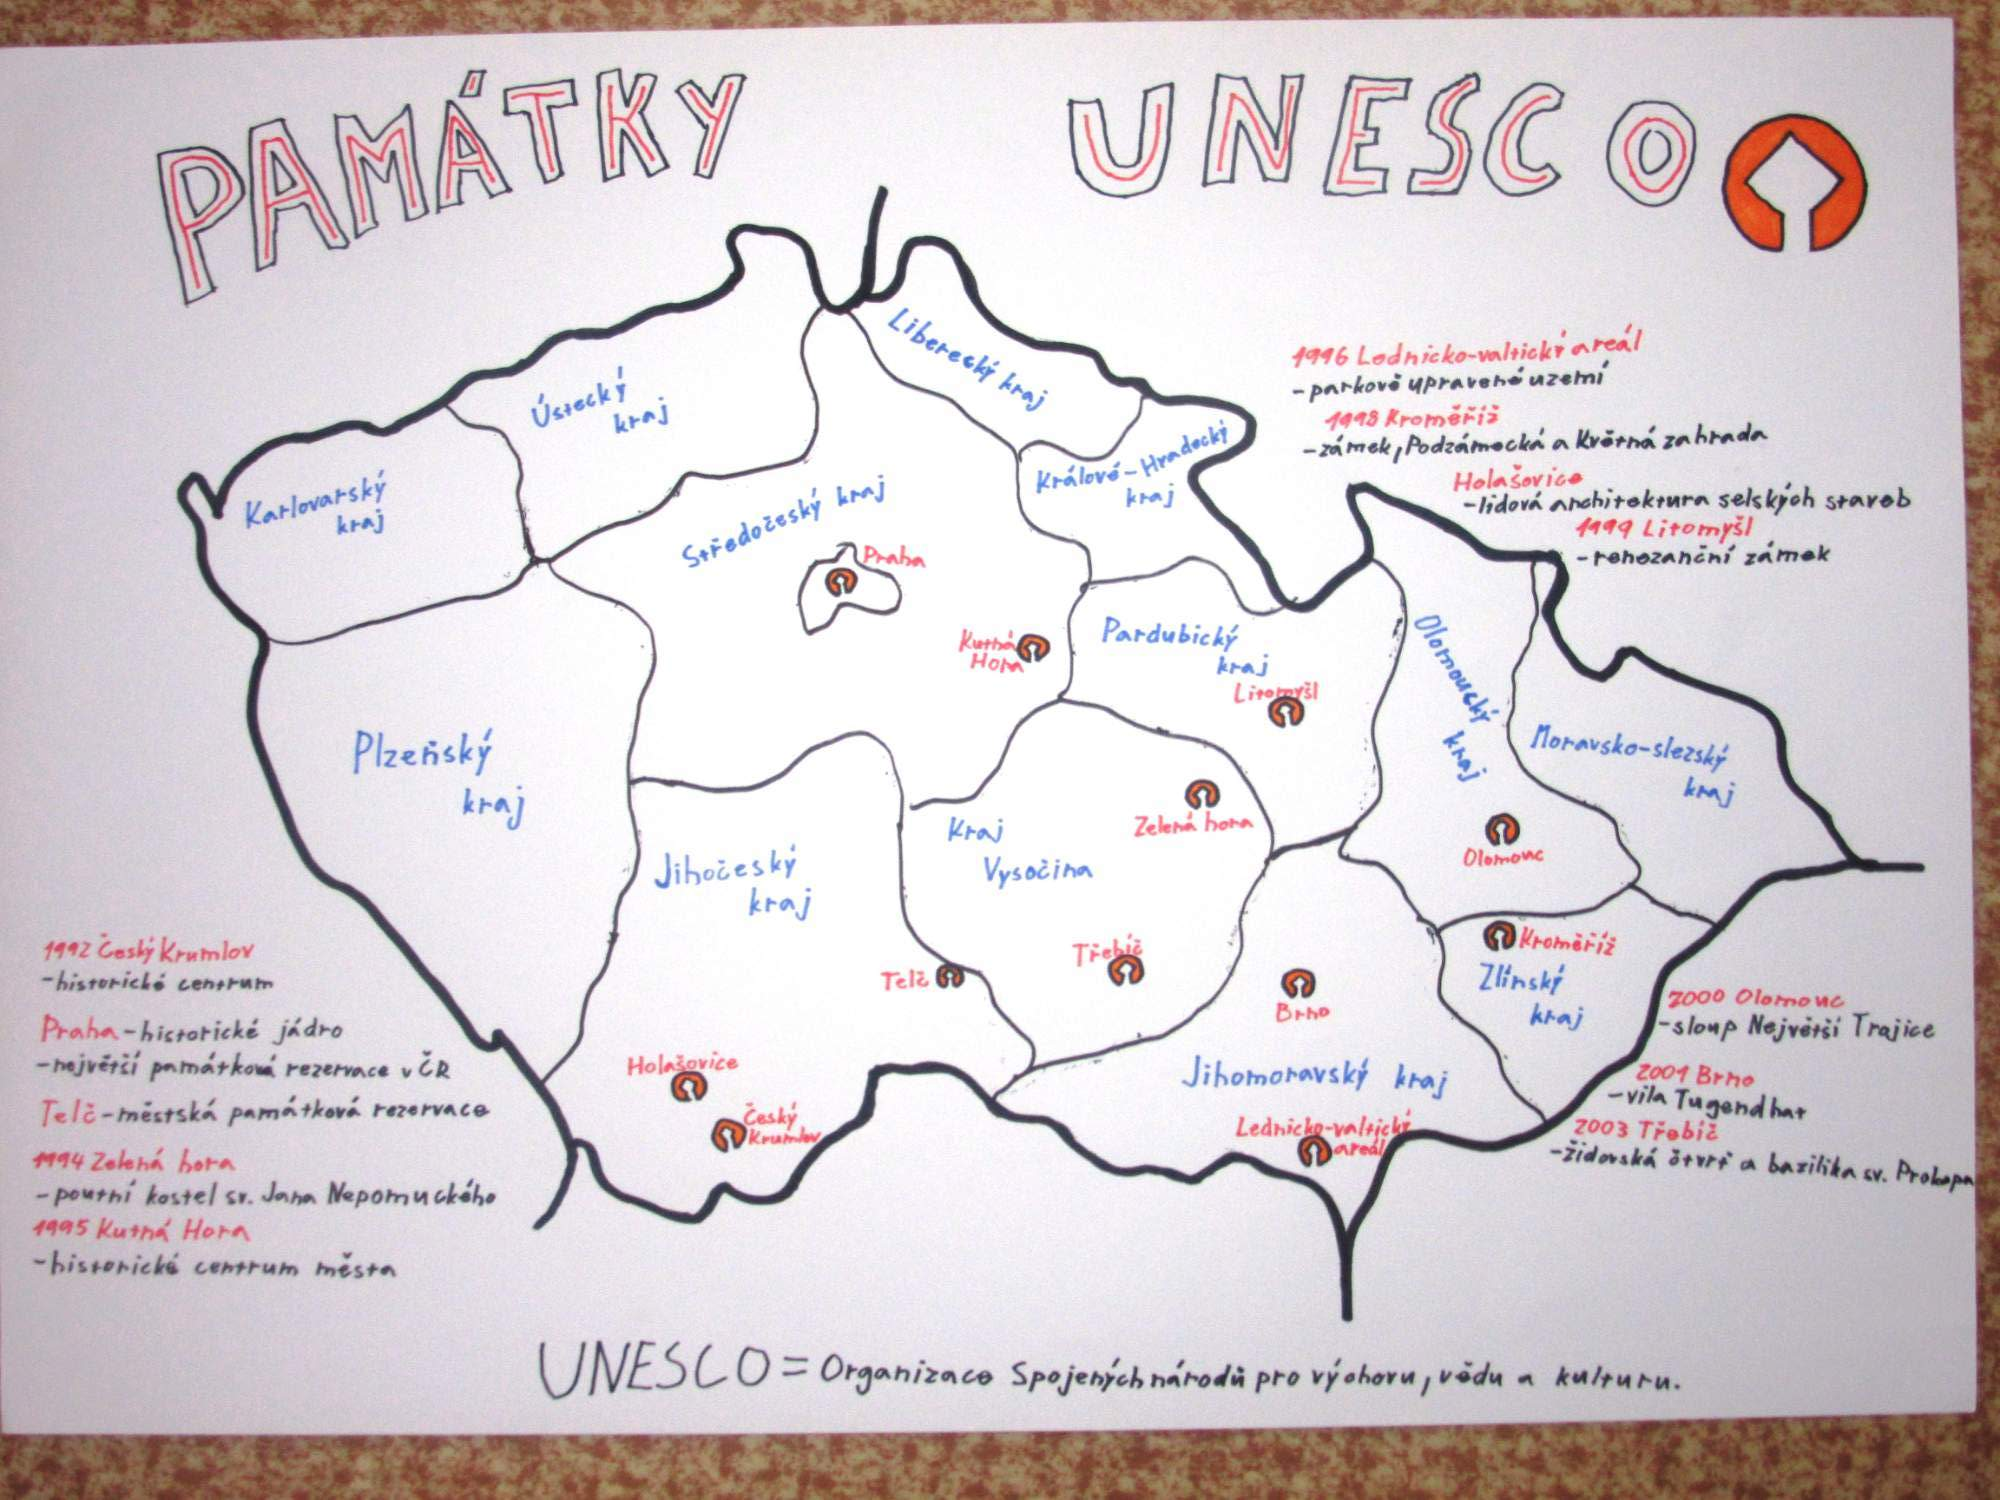 PAMÁTKY UNESCO
Liberecký kraj
Ústecký
kraj
Karlovarský
kraj
Králové-Hradecký
kraj
Středočeský kraj
Praha
Kutná
Hora
Pardubický
kraj
Litomyšl
Olomoucký kraj
Moravsko-slezský
kraj
Plzeňský
kraj
Jihočeský
kraj
Kraj
Vysočina
Zelená hora
Olomouc
Telč
Třebíč
Brno
Kroměříž
Zlínský
kraj
Holašovice
Český
Krumlov
Jihomoravský kraj
Lednicko-valtický
areál
1996 Lednicko-valtický areál
-parkově upravené uzemí
1998 Kroměříž
-zámek, Podzámecká a Květná zahrada
Holašovice
-lidová architektura selských staveb
1999 Litomyšl
-renezanční zámek
1992 Český Krumlov
-historické centrum
Praha-historické jádro
-největší památková rezervace v ČR
Telč-městská památková rezervace
1994 Zelená hora
-poutní kostel sv. Jana Nepomuckého
1995 Kutná Hora
-historické centrum města
2000 Olomouc
-sloup Největší Trajice
2001 Brno
-vila Tugendhat
2003 Třebíč
-židovská čtvrť a bazilika sv. Prokopa
UNESCO = Organizace Spojených národů pro výchovu, vědu a kulturu.